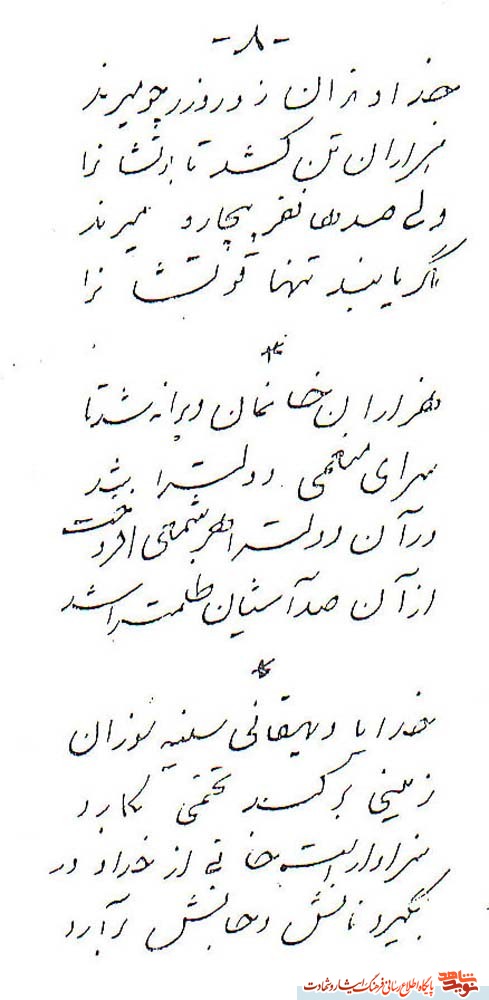 -۸-
خداوندان زور و زر چو میرند
هزاران تن کشد تابوتشان را
ولی صدها نفر بیچاره میرند
اگر یابند تنها قوتشان را
*
هزاران خانمان ویرانه شد تا
سرای منعمی دولتسرا شد
در آن دولتسرا هر شمعی افروخت
از آن صد آشیان ظلمتسرا شد
*
خدایا دهقانی سینه سوزان
زمینی برکند تخمی بکارد
سزاوار است خانی از خدا دور
بگیرد نانش و جانش برآرد
نوید شاهد
پایگاه اطلاع رسانی فرهنگ ایثار و شهادت